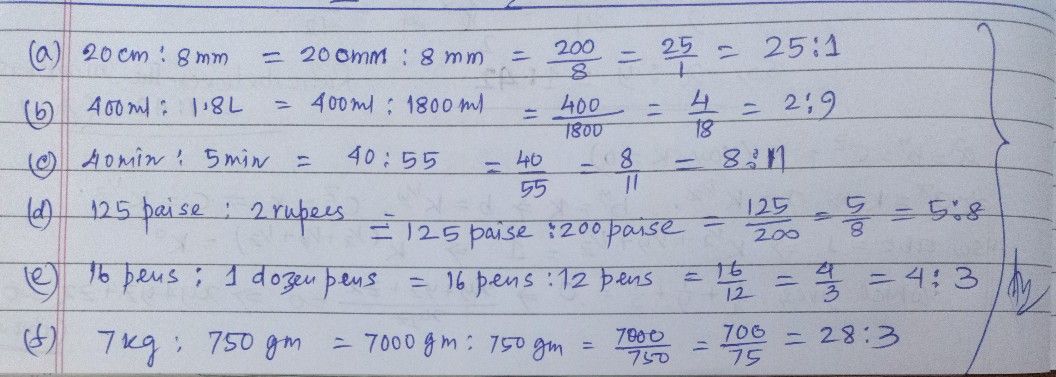 (a) 20cm : 8mm = 200mm : 8mm = 200/8 = 25/1 = 25:1
(b) 400ml : 1.8L = 400ml : 1800ml = 400/1800 = 4/18 = 2:9
(c) 40min : 5min = 40:55 = 40/55 = 8/11 = 8:11
(d) 125 paise : 2rupees = 125 paise : 200 paise = 125/200 = 5/8 = 5:8
(e) 16 pens : 1 dozen pens = 16 pens : 12 pens = 16/12 = 4/3 = 4:3
(f) 7kg : 750 gm = 7000gm : 750 gm = 7000/750 = 700/75 = 28:3